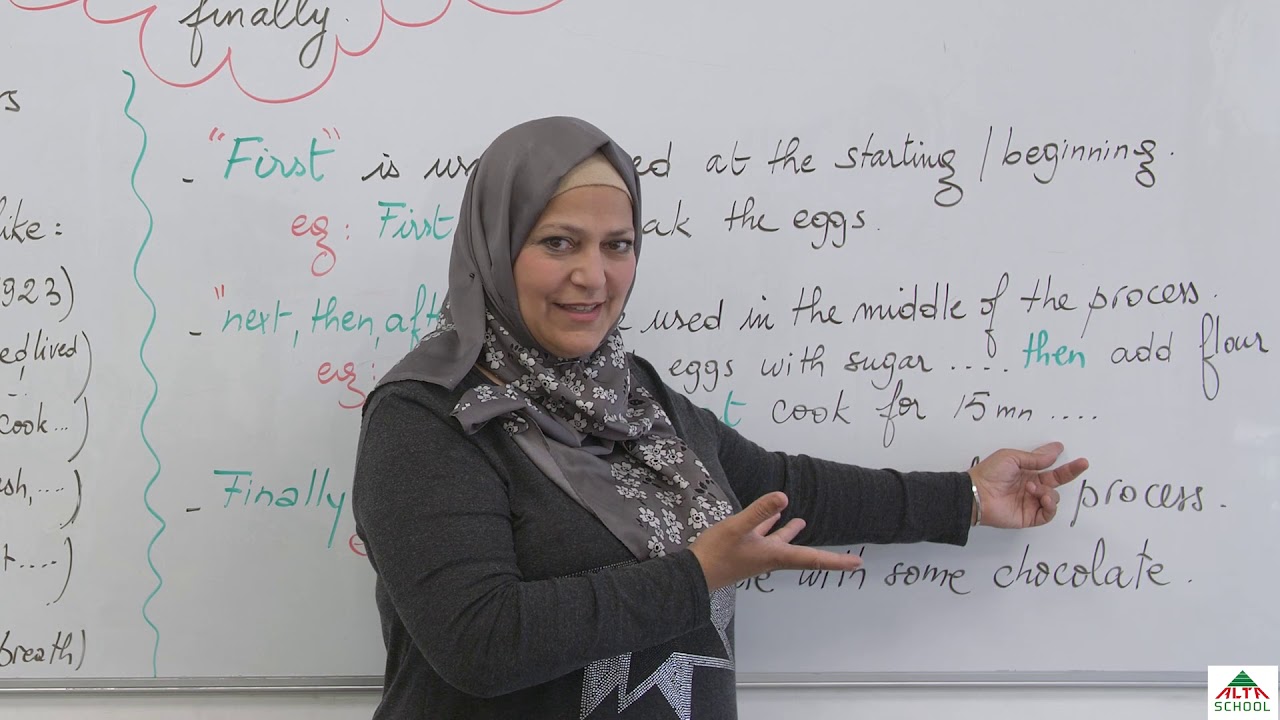 finally.
like:
1923)
lived)
cook...)
sh,....)
t....)
breath)
- "First" is used at the starting / beginning.
eg: First the eggs.
- "next, then, used in the middle of the process.
eg: eggs with sugar .... then add flour
cook for 15mn ....
- Finally process.
with some chocolate.
ALTA
SCHOOL